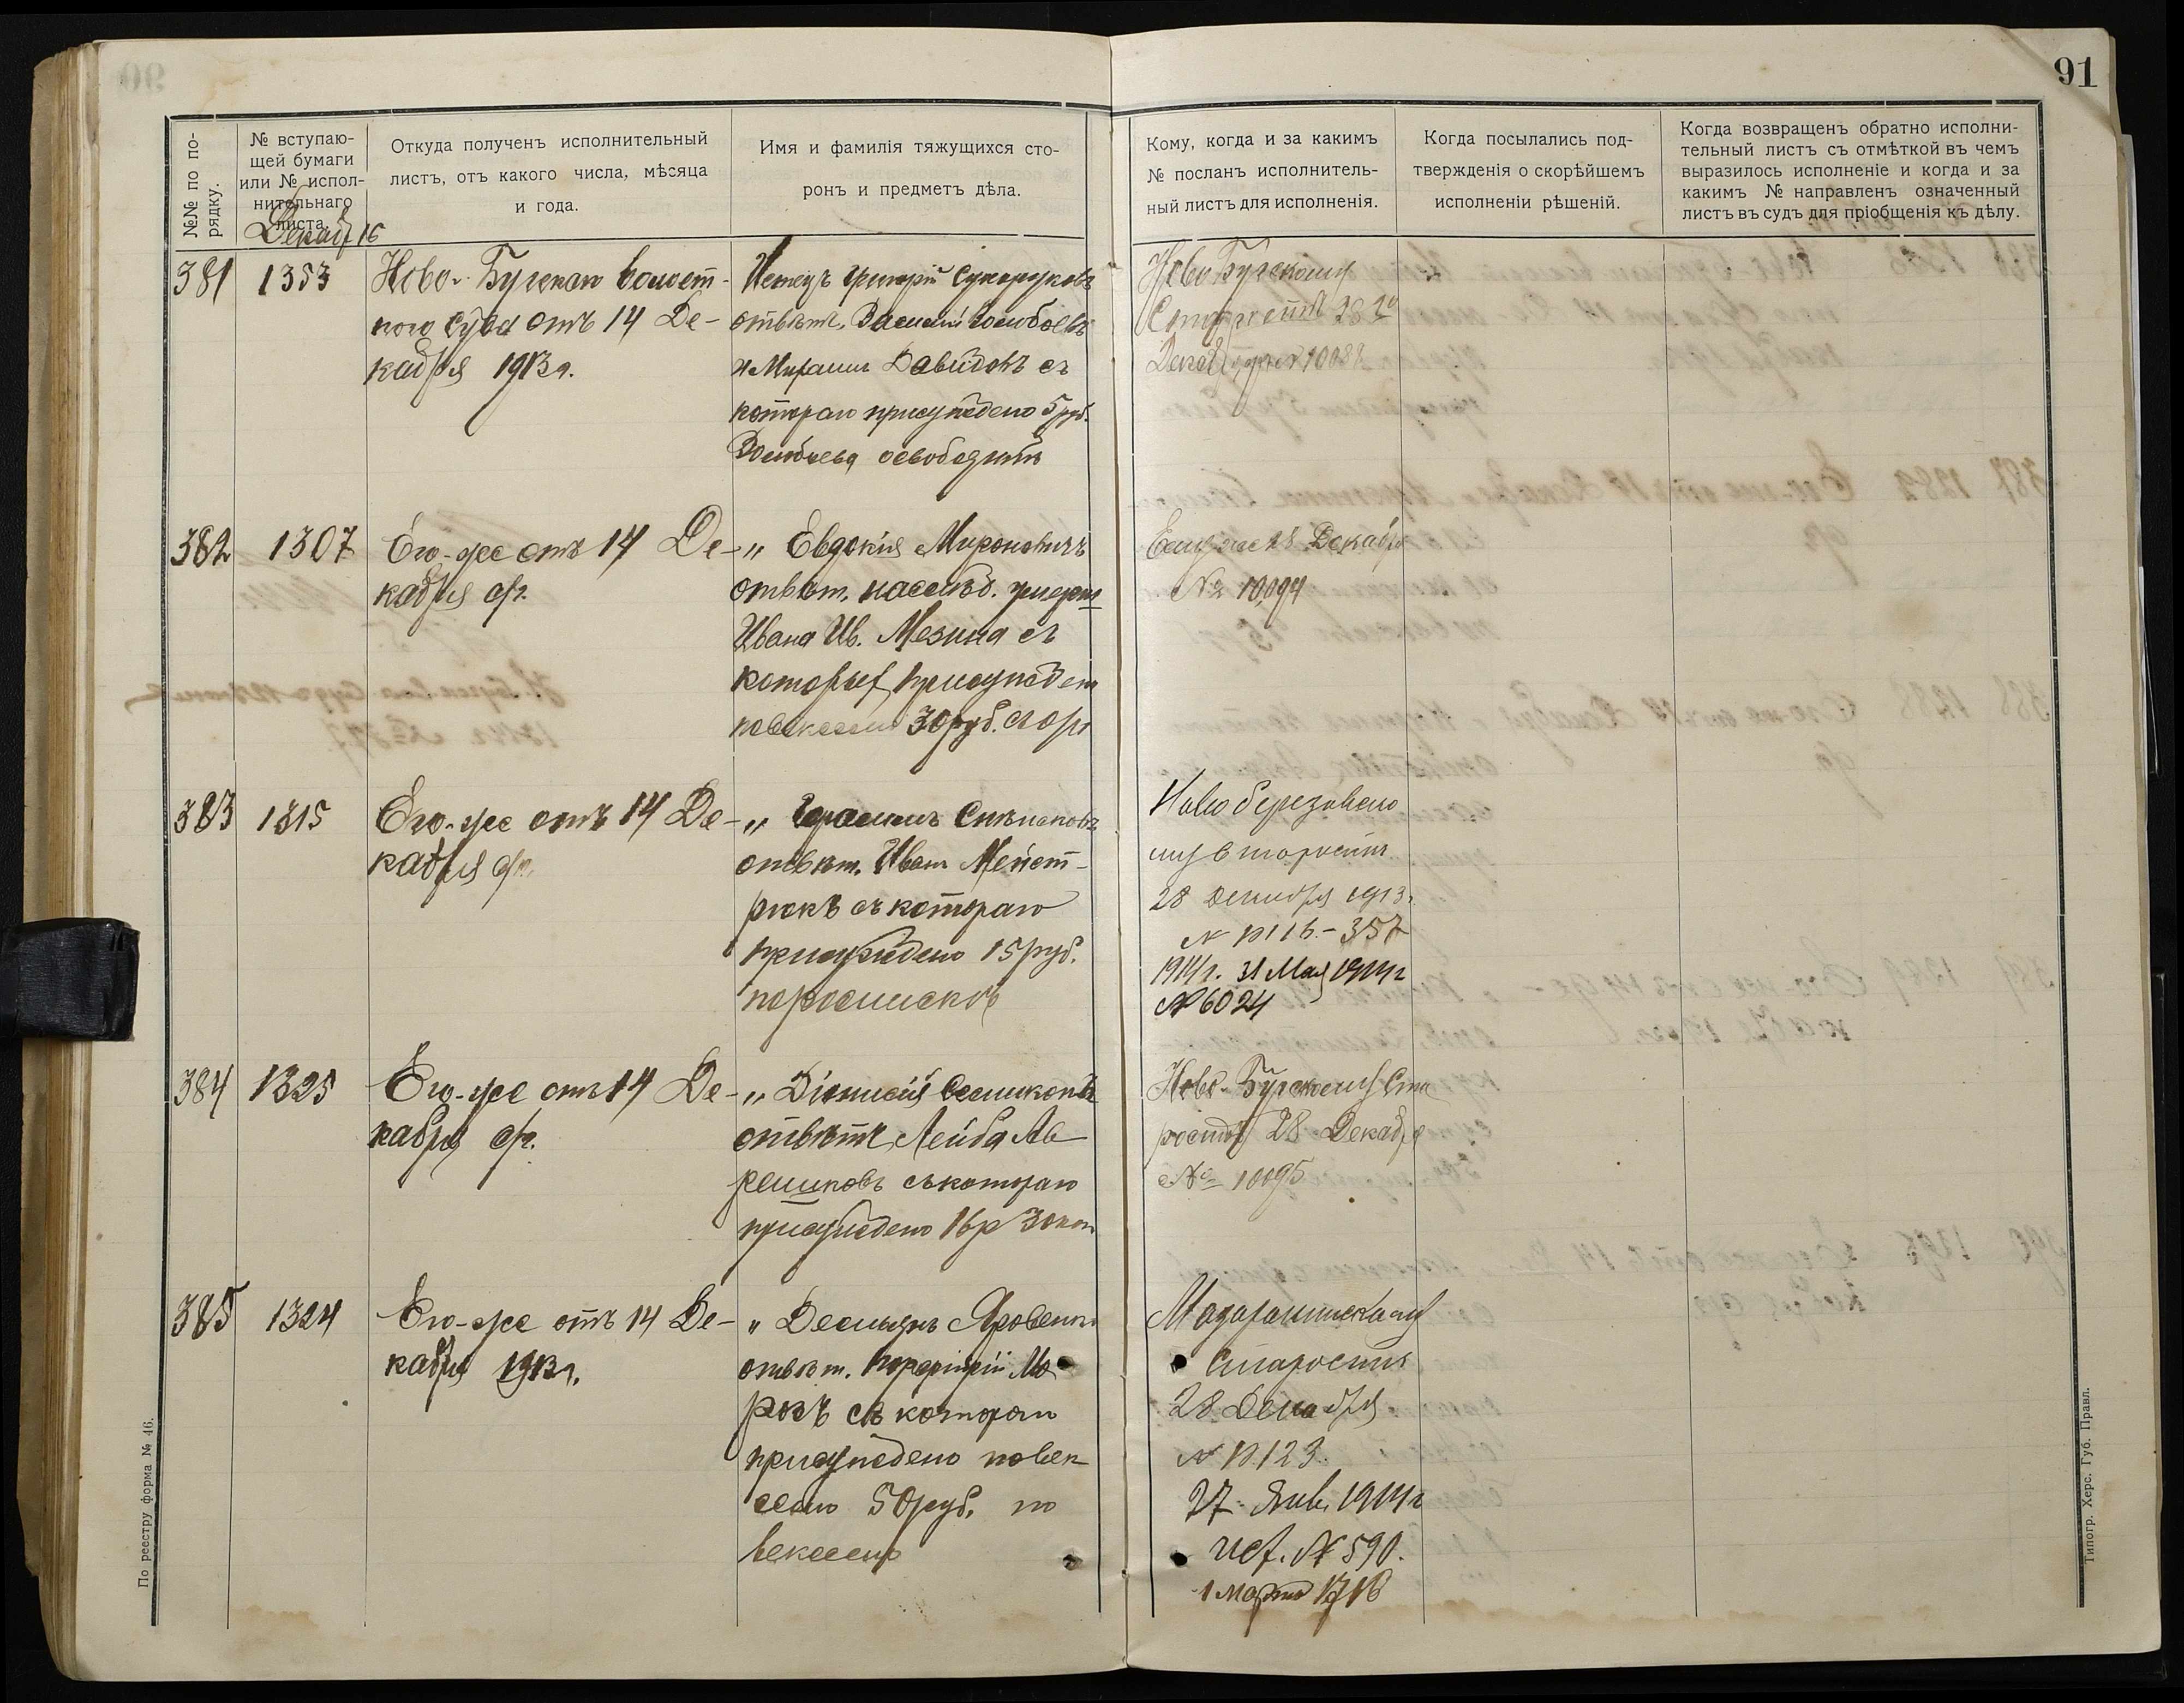 91
№№ по по-
рядку.
№ вступаю-
щей бумаги
или № испол-
нительнаго
листа.
Откуда полученъ исполнительный
листъ, отъ какого числа, мѣсяца
и года.
Имя и фамилія тяжущихся сто-
ронъ и предметъ дѣла.
Кому, когда и за какимъ
№ посланъ исполнитель-
ный листъ для исполненія.
Когда посылались под-
твержденія о скорѣйшемъ
исполненіи рѣшеній.
Когда возвращенъ обратно исполни-
тельный листъ съ отмѣткой въ чемъ
выразилось исполненіе и когда и за
какимъ № направленъ означенный
листъ въ судъ для пріобщенія къ дѣлу.
Декаб 16
381
1353
Ново-Бугскаго волост-
ного Суда отъ 14 Де-
кабря 1913 г.
Истецъ Григорій Сухоруковъ
отвѣтч. Василій
и Давидовъ съ
котораго присуждено 5 руб.
освободить
Ново Бугскому
Старостѣ 28го
Декабря № 10088
382
1307
Его-же отъ 14 Де-
кабря с/г.
„ Евдокія Мироновичъ
отвѣт. наслѣд.
Ивана Ив. Мезина съ
которых присужден
по векселю 30 руб.
Ему же 28 Декабря
№ 10094
383
1315
Его-же отъ 14 Де-
кабря с/г.
„ Герасимъ
отвѣт. Иван
съ котораго
присуждено 15 руб.
по роспискѣ
Ново березовско
му Старостѣ
28 Декабря 1913 г.
1914 г. 31 Мая 1914 г
№ 6024
384
1325
Его-же отъ 14 Де-
кабря с/г.
„ Діонисій
отвѣтч. Лейба Ав
съ котораго
присуждено 16 р 30 коп
Ново-Бугскому Ста
ростѣ 28 Декабря
№ 10095
385
1324
Его-же отъ 14 Де-
кабря 1913 г.
„ Демьянъ Яровенко
отвѣт.
съ котораго
присуждено по век
селю 50 руб. по
векселю
Старостѣ
28 Декабря
27 Янв. 1914 г
исх. № 590.
1 марта
По реестру форма № 46.
Типогр. Херс. Губ. Правл.